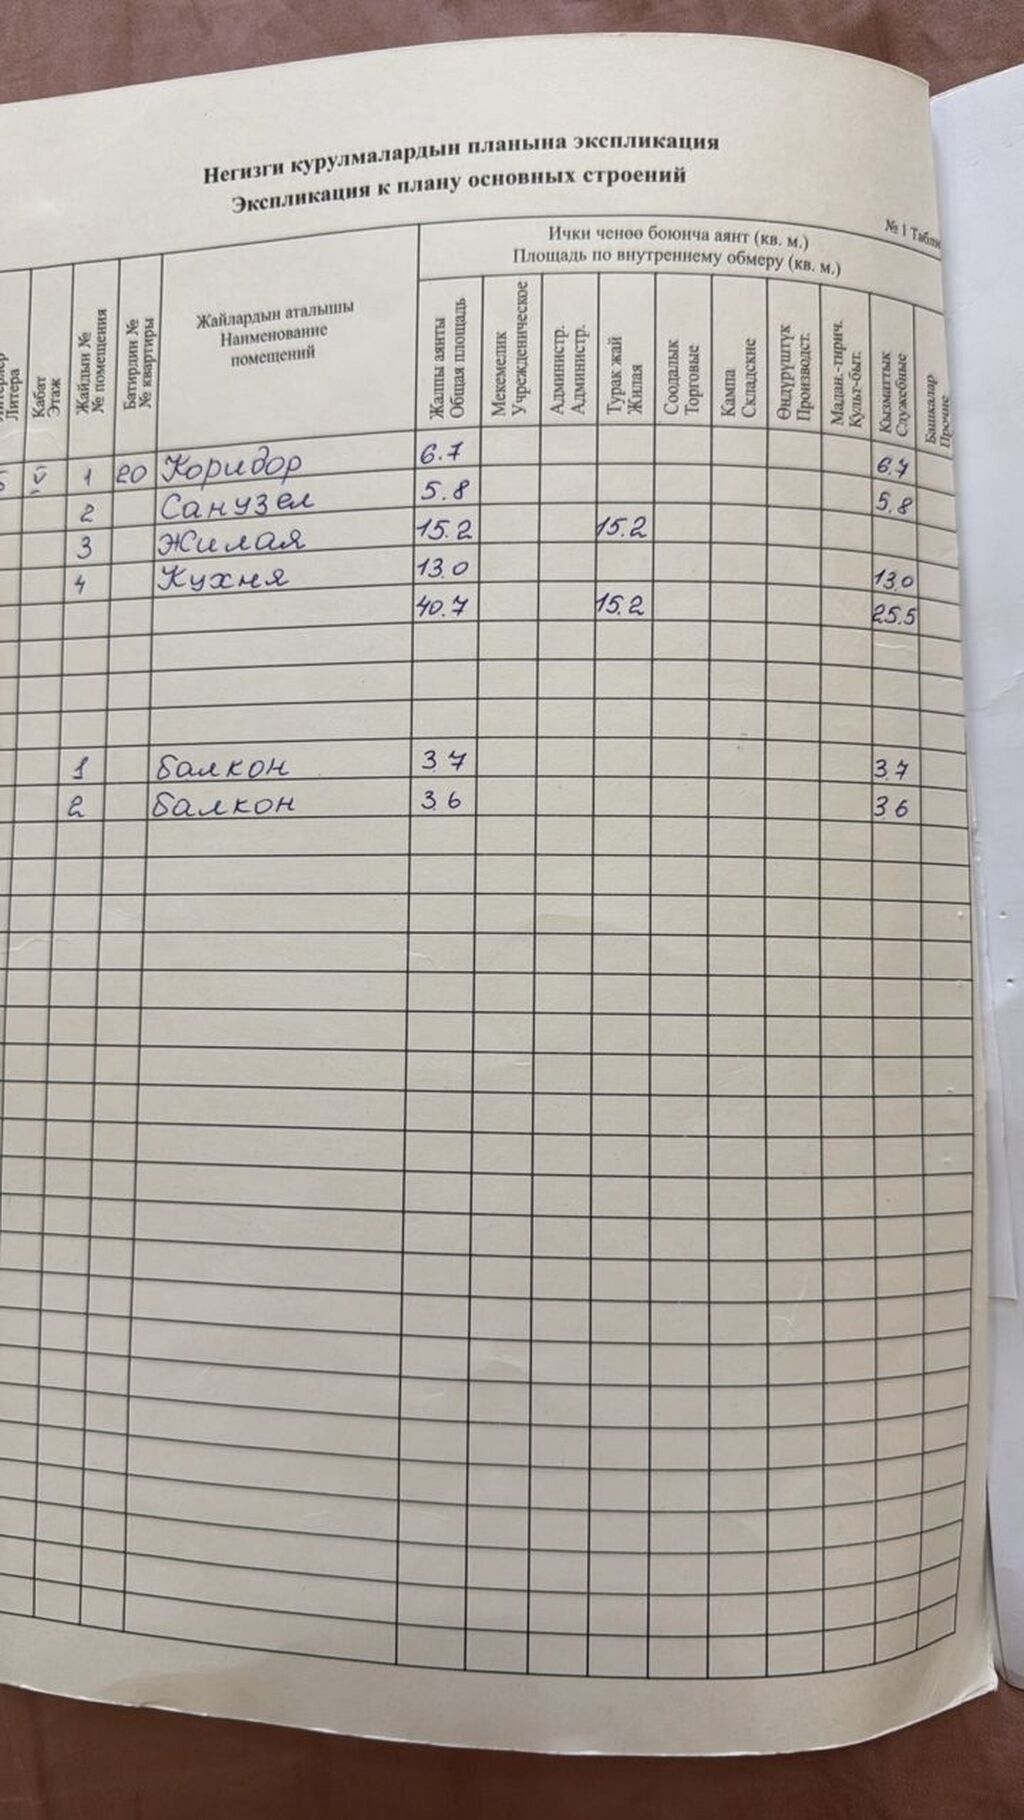 Негизги курулмалардын планына экспликация
Экспликация к плану основных строений
№ 1 Табли
Ички ченөө боюнча аянт (кв. м.)
Площадь по внутреннему обмеру (кв. м.)
Литера
Кабат
Этаж
Жайдын №
№ помещения
Батирдин №
№ квартиры
Жайлардын аталышы
Наименование
помещений
Жалпы аянты
Общая площадь
Мекемелик
Учрежденическое
Администр.
Администр.
Турак жай
Жилая
Соодалык
Торговые
Кампа
Складские
Өндүрүштүк
Производст.
Мадан.-тирич.
Культ-быт.
Кызматтык
Служебные
Башкалар
Прочие
V 1 20 Коридор 6.7 6.7
2 Санузел 5.8 5.8
3 Жилая 15.2 15.2
4 Кухня 13.0 13.0
40.7 15.2 25.5
1 балкон 3.7 3.7
2 балкон 3.6 3.6